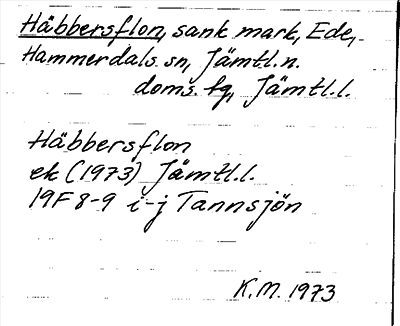 Häbbersflon, sank mark, Ede,
Hammerdals sn, Jämtl.n.
doms. fg, Jämtl.l.
Häbbersflon
ek (1973) Jämtl.l.
19F 8-9 i-j Tannsjön
K.M. 1973